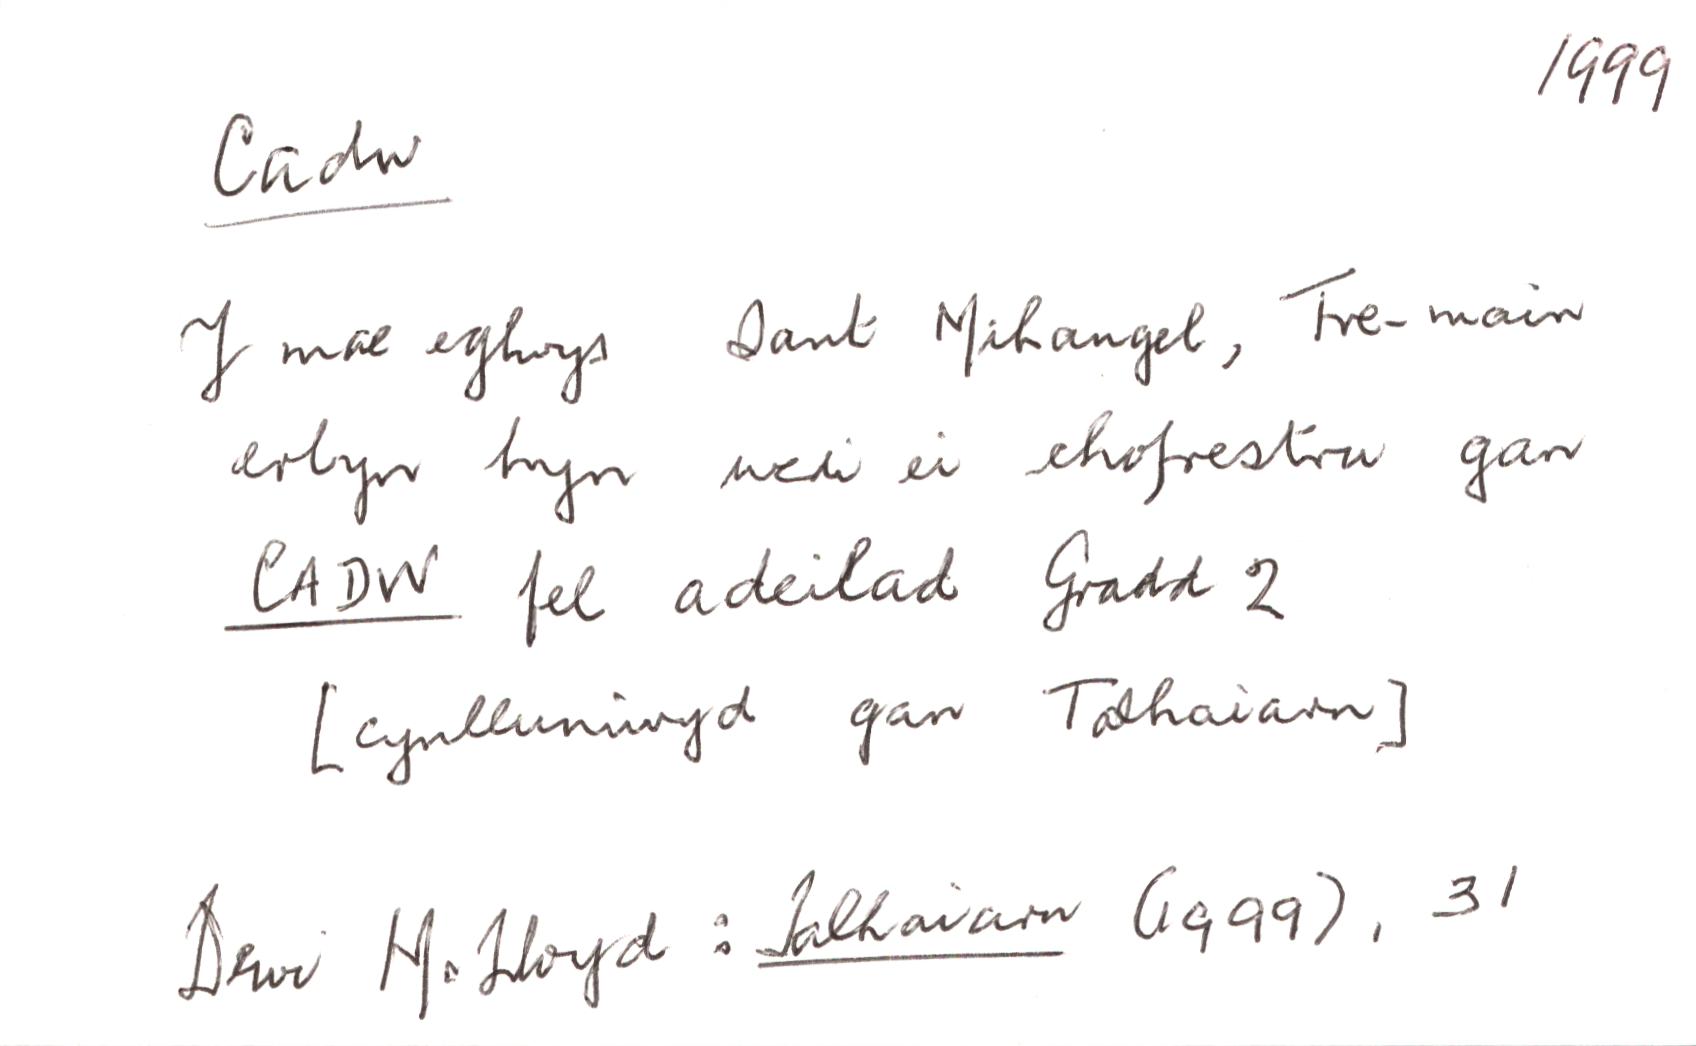 1999
Cadw
Y mae eglwys Sant Mihangel, Tre-main
erbyn hyn wedi ei chofrestru gan
CADW fel adeilad Gradd 2
[cynlluniwyd gan Talhaiarn]
Dewi M. Lloyd : Talhaiarn (1999), 31